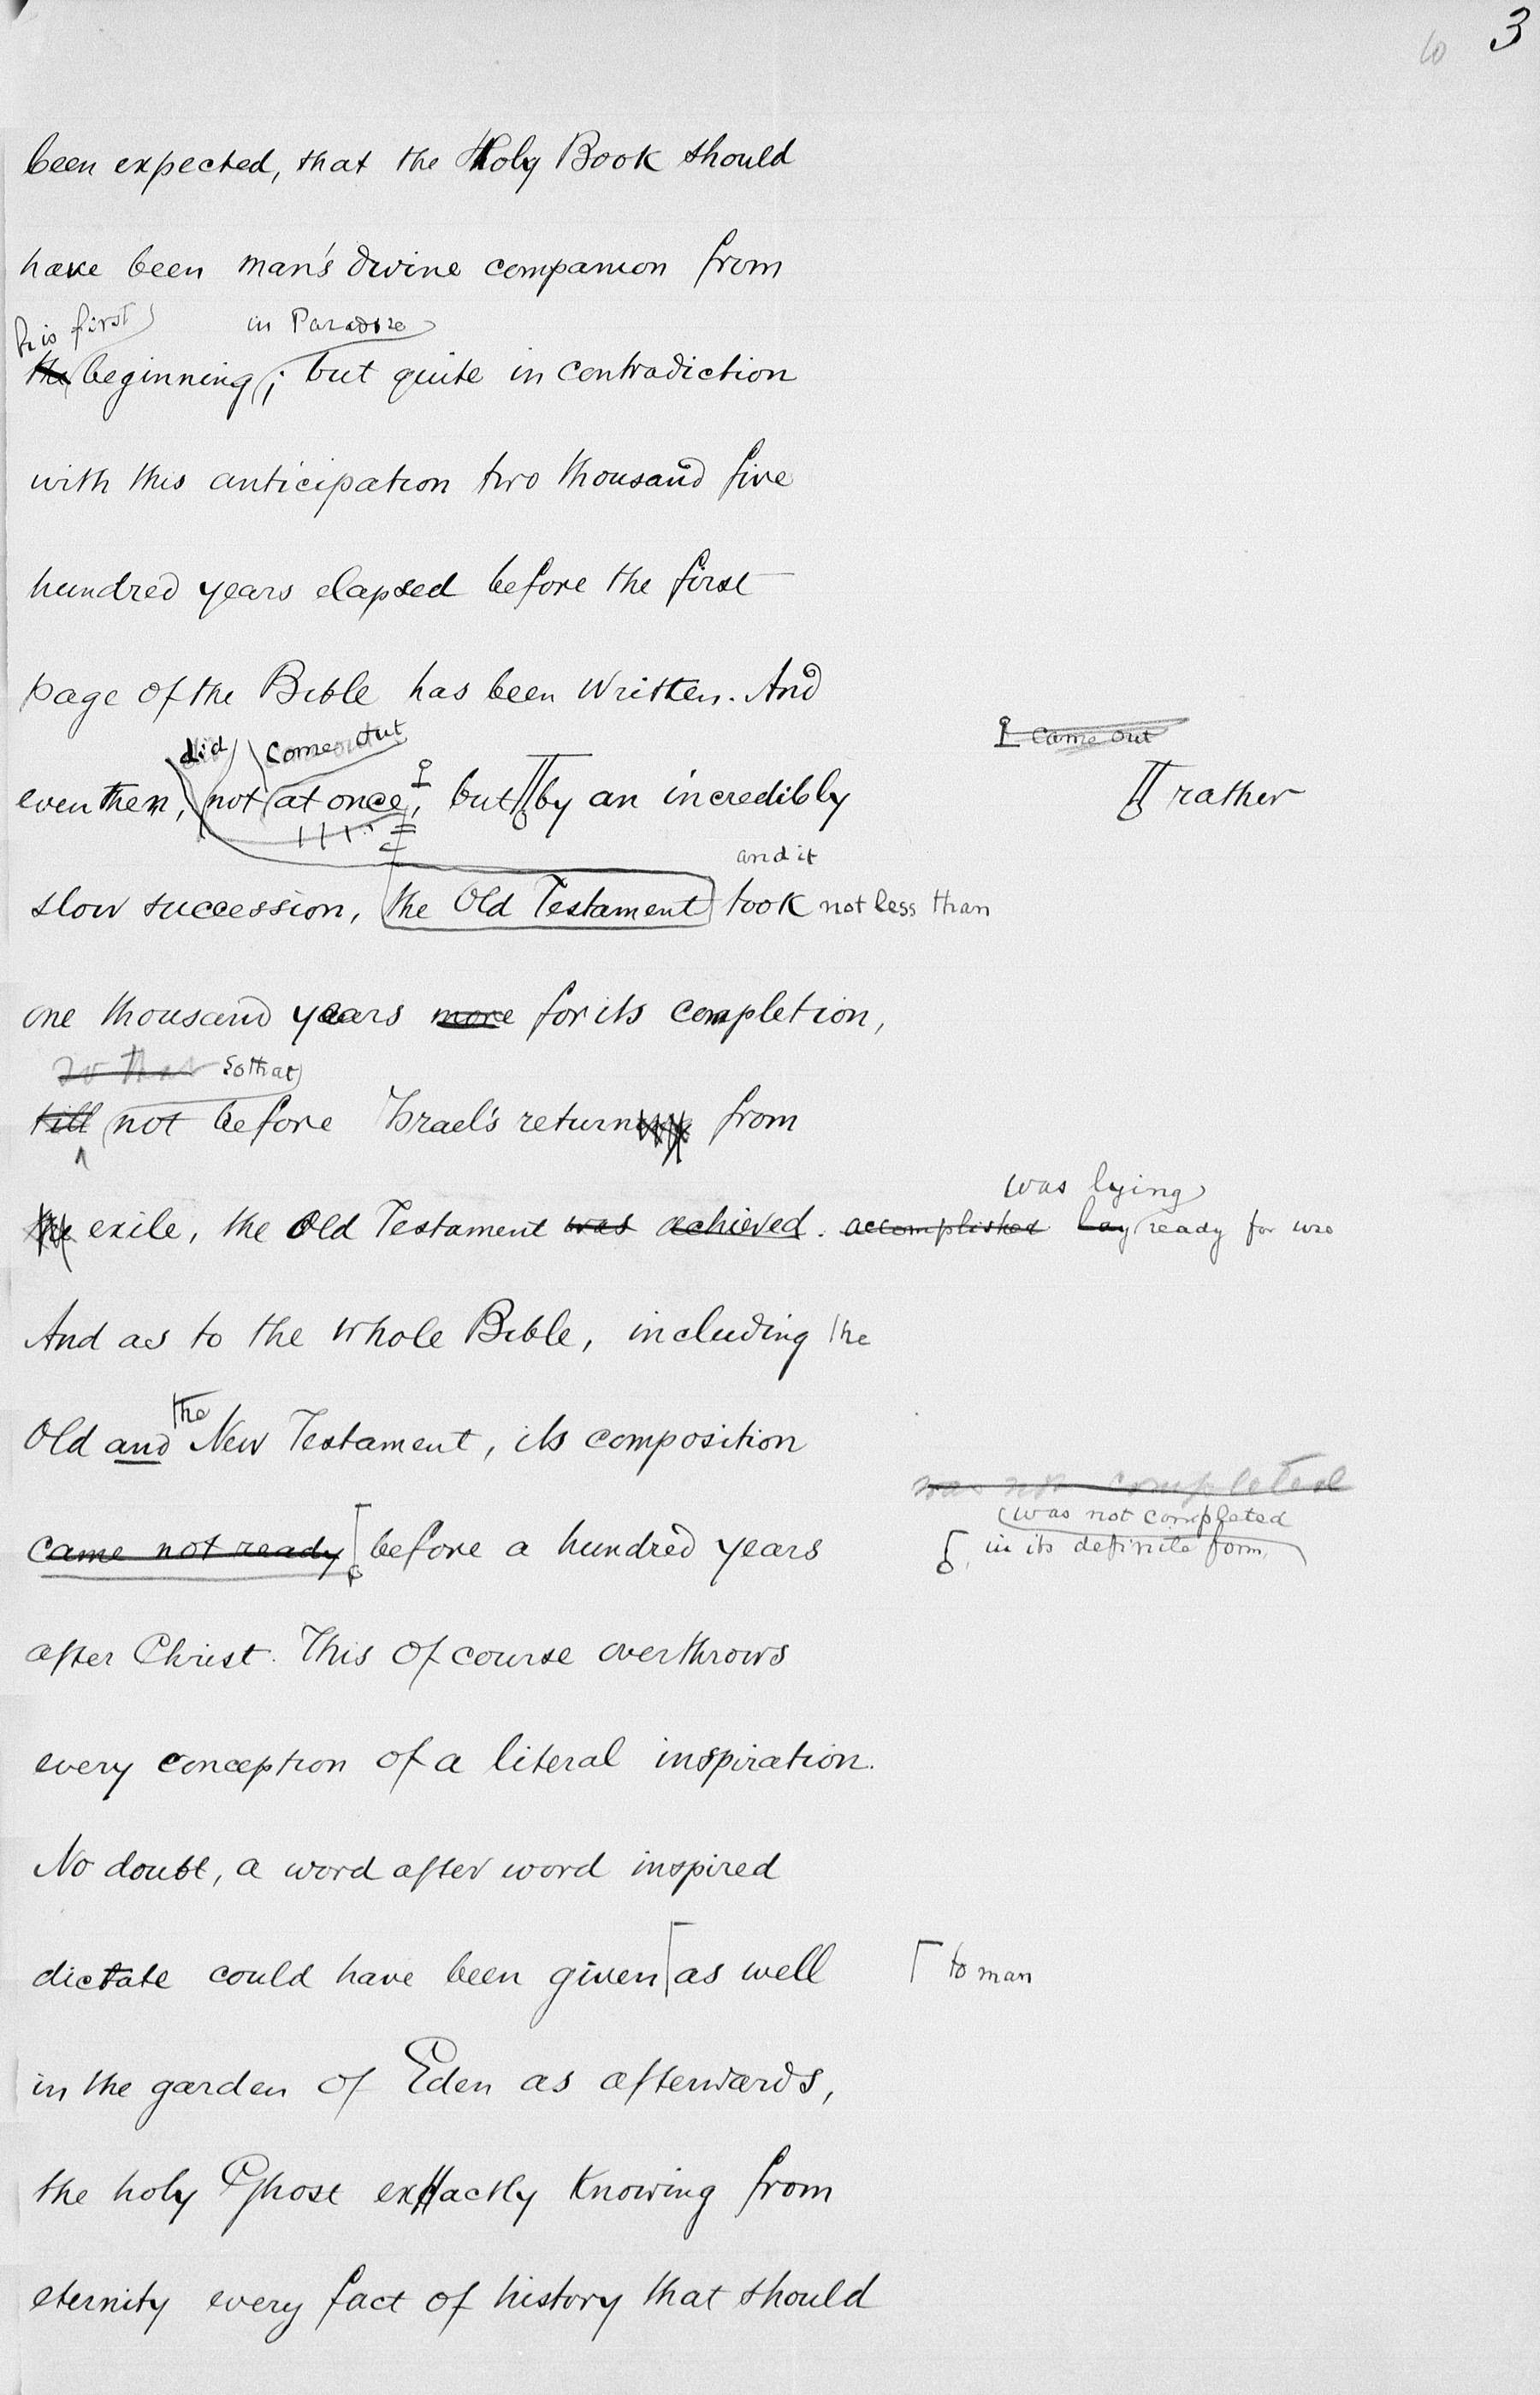 10 3
been expected, that the Holy Book should
have been man's divine companion from
his first in Paradise
the beginning; but quite in contradiction
with this anticipation two thousand five
hundred years elapsed before the first
page of the Bible has been written. And
did come out
came out
even then, not at once, but by an incredibly
rather
and it
slow succession, the Old Testament took not less than
one thousand years more for its completion,
so that so that
till not before Israel's return from
was lying
the exile, the Old Testament was achieved. accomplished lay ready for use
And as to the whole Bible, including the
the
Old and New Testament, its composition
was not completed
was not completed
came not ready before a hundred years
in its definite form
after Christ. This of course overthrows
every conception of a literal inspiration.
No doubt, a word after word inspired
dictate could have been given as well
to man
in the garden of Eden as afterwards,
the holy Ghost exactly knowing from
eternity every fact of history that should